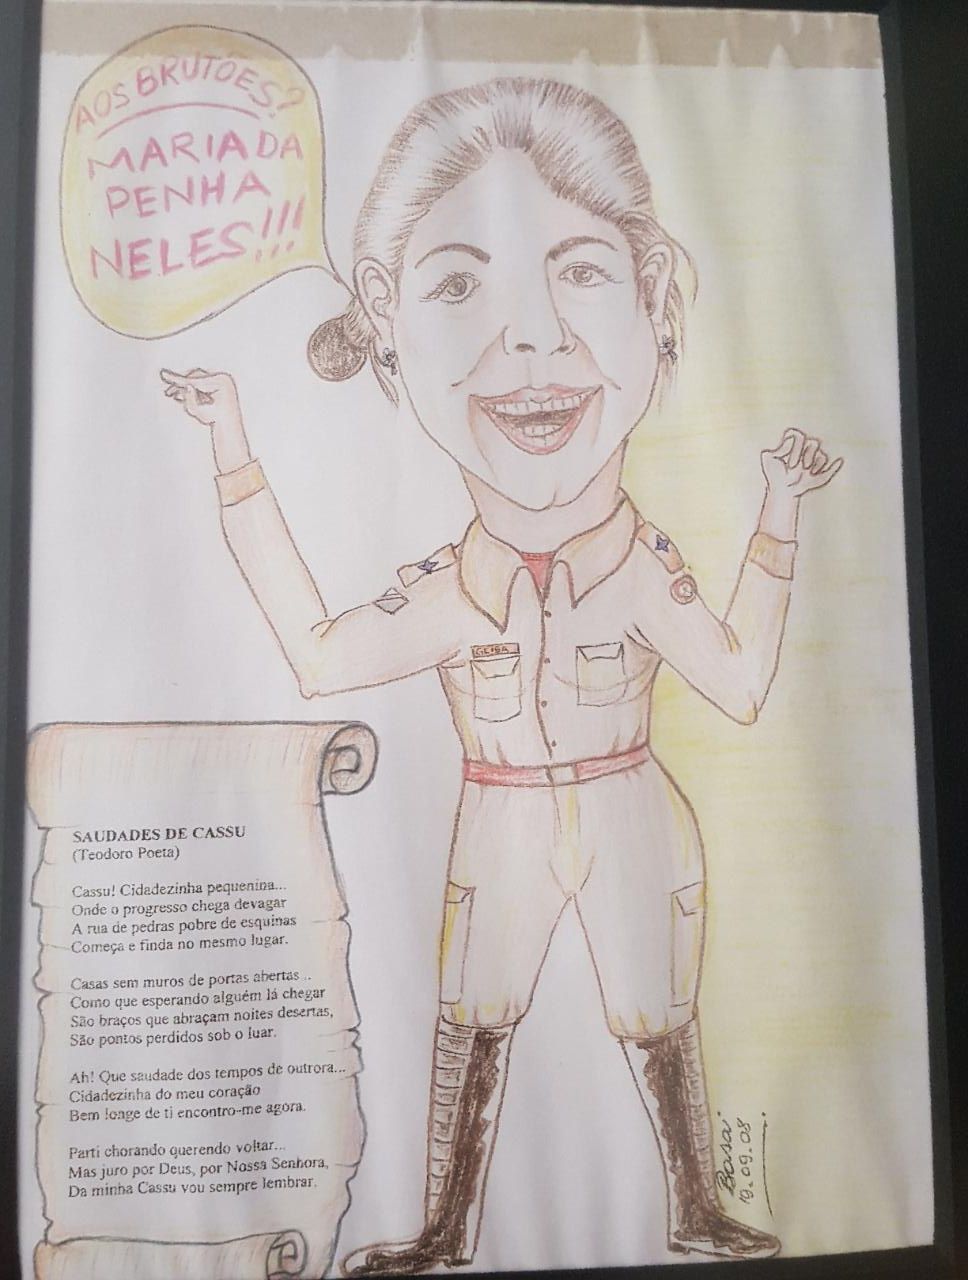 AOS BRUTÕES?
MARIA DA
PENHA
NELES!!!
GEISA
SAUDADES DE CASSU
(Teodoro Poeta)
Cassu! Cidadezinha pequenina...
Onde o progresso chega devagar
A rua de pedras pobre de esquinas
Começa e finda no mesmo lugar.
Casas sem muros de portas abertas...
Como que esperando alguém lá chegar
São braços que abraçam noites desertas,
São pontos perdidos sob o luar.
Ah! Que saudade dos tempos de outrora...
Cidadezinha do meu coração
Bem longe de ti encontro-me agora.
Parti chorando querendo voltar...
Mas juro por Deus, por Nossa Senhora,
Da minha Cassu vou sempre lembrar.
19.09.08